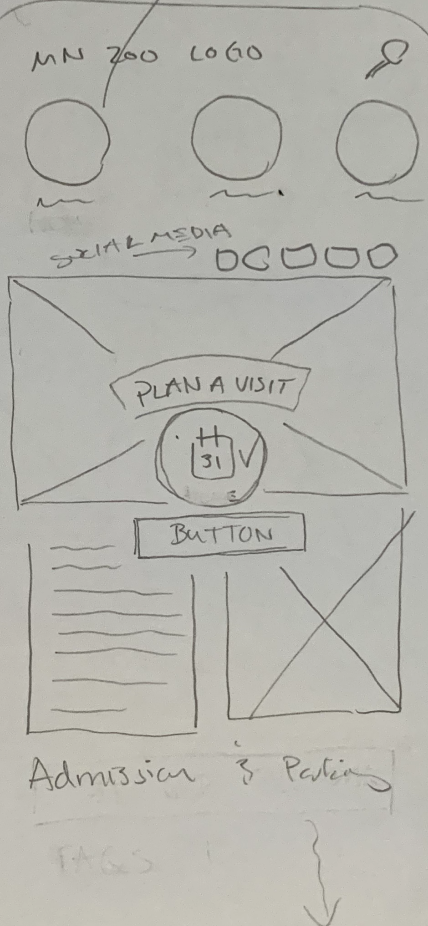 MN ZOO LOGO
SOCIAL MEDIA
PLAN A VISIT
31
BUTTON
Admission & Parking
TAGS